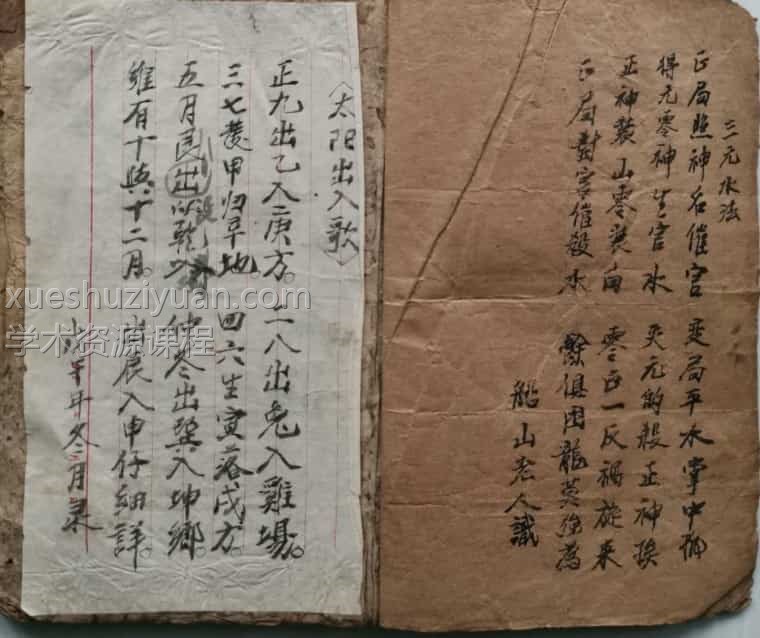 三元水法
正局照神名催官 变局平水掌中
得元零神生官水 失元的殺正神挨
正神裝山零裝向 零正一反禍旋来
正局對宮催殺水 慎困龍莫強為
船山老人識
〈太阳出入歌〉
正九出乙入庚方。二八出兔入雞場。
三七發甲归辛地 四六生寅落戌方。
五月艮出以乾 仲冬出巽入坤鄉。
惟有十與十二月。出辰入申仔細詳。
年冬二月录
xueshuziyuan.com
学术资源课程